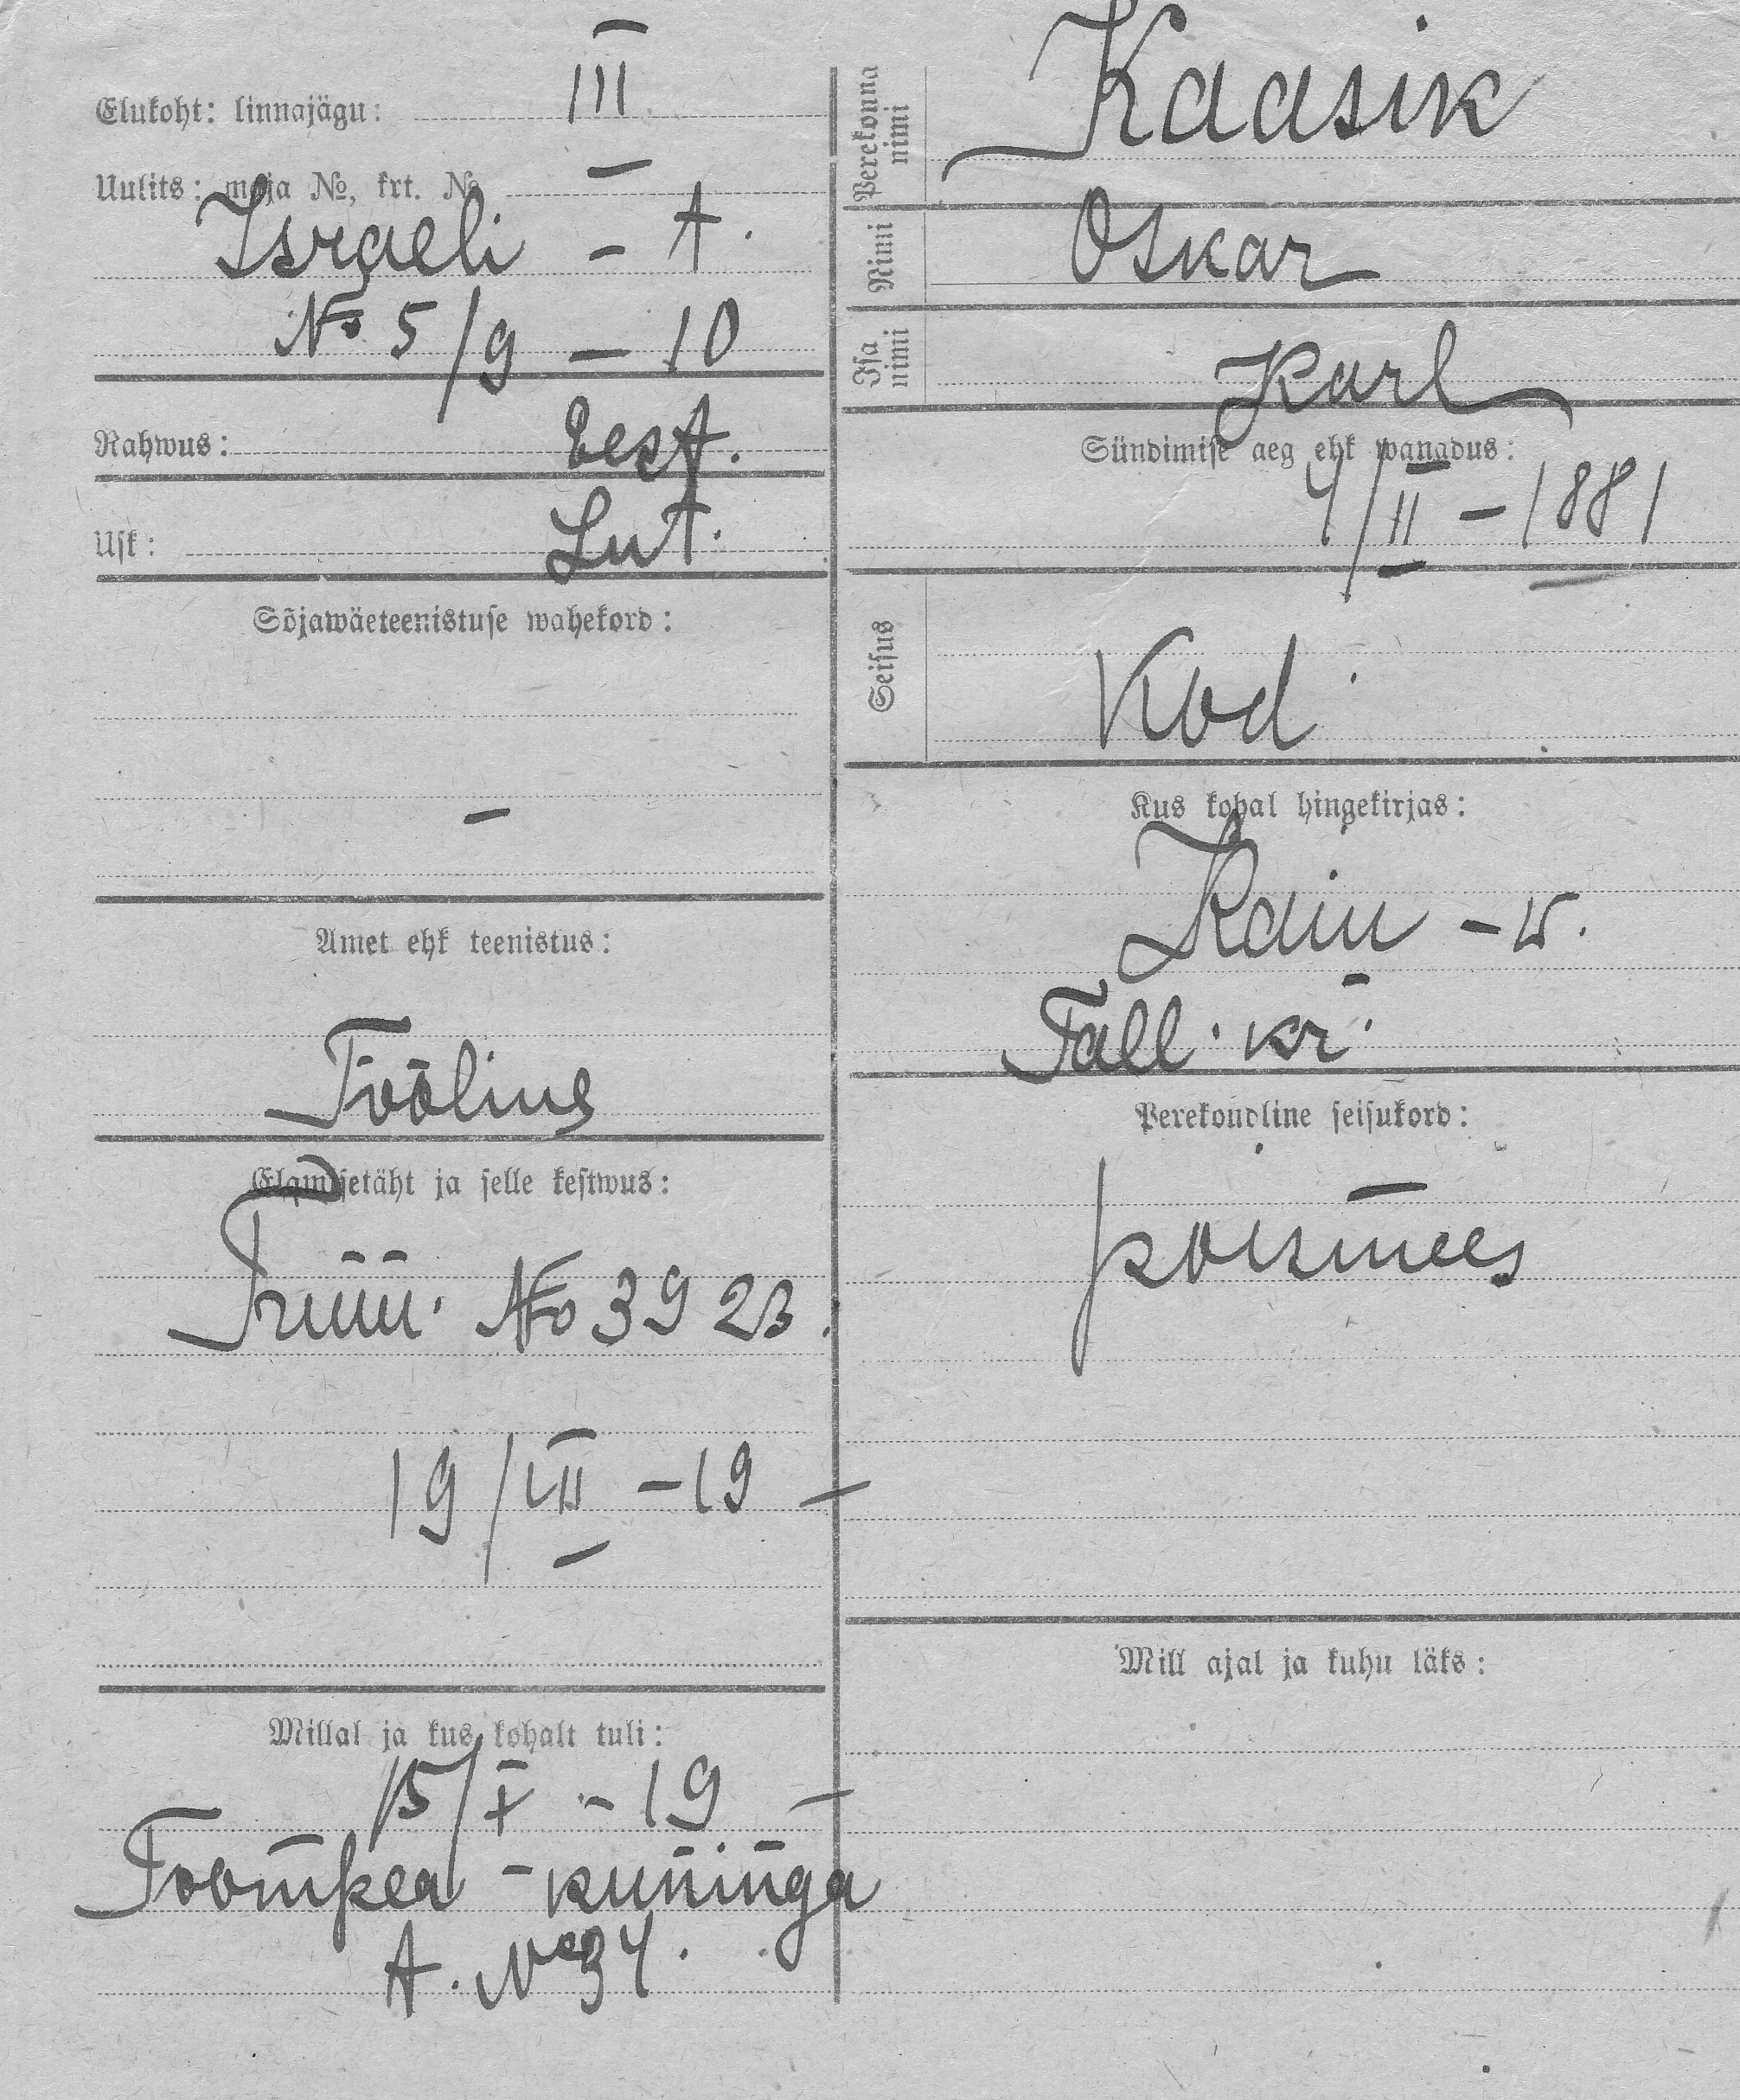 Elukoht: linnajägu: III
Uulits: maja №, krt. №
Israeli - t.
№ 5/9 - 10
Rahwus: Eest.
Usk: Lut.
Sõjawäeteenistuse wahekord:
-
Amet ehk teenistus:
Tööline
Elamisetäht ja selle kestwus:
№ 3923.
19/III - 19 -
Millal ja kus kohalt tuli:
15/X - 19 -
Toompea - kuninga
t. № 34.
Perekonna nimi Kaasik
Nimi Oskar
Isa nimi Karl
Sündimise aeg ehk wanadus:
4/II - 1881
Seisus Kod.
Kus kohal hingekirjas:
- w.
Tall. kr.
Perekondline seisukord:
poismees
Mill ajal ja kuhu läks: